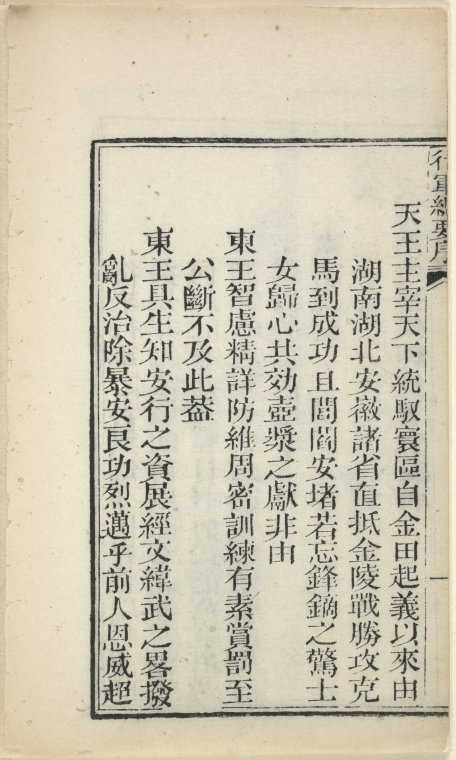 行軍總要序
一
天王主宰天下統馭寰區自金田起義以來由
湖南湖北安徽諸省直抵金陵戰勝攻克
馬到成功且閭閻安堵若忘鋒鏑之驚士
女歸心共効壺漿之獻非由
東王智慮精詳防維周密訓練有素賞罰至
公斷不及此葢
東王具生知安行之資展經文緯武之畧撥
亂反治除暴安良功烈邁乎前人恩威超